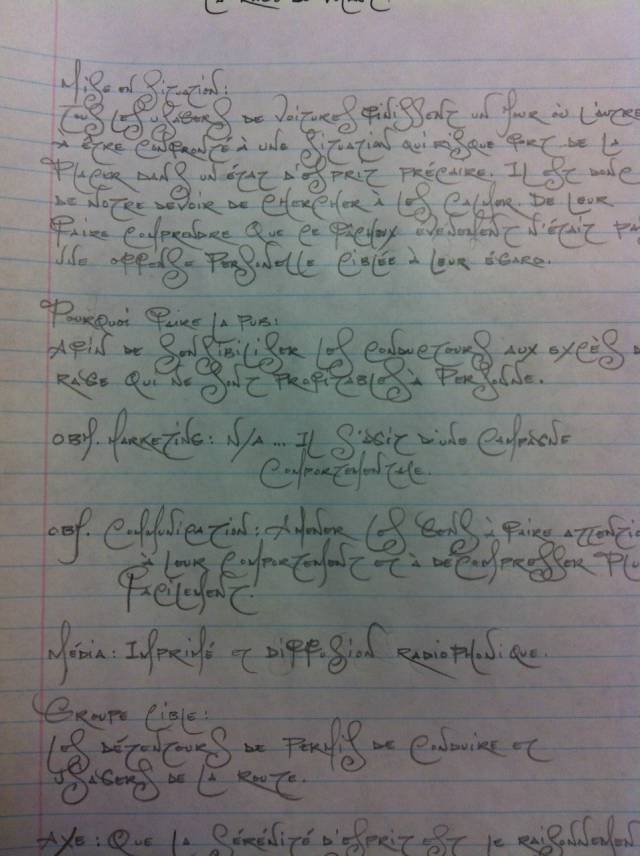 La rage au volant
Mise en situation:
Tous les usagers de voitures finissent un jour où l'autre
à être confronté à une situation qui risque fort de la
placer dans un état d'esprit précaire. Il est donc
de notre devoir de chercher à les calmer. De leur
faire comprendre que ce fâcheux évènement n'était pas
une offense personelle ciblée à leur égard.
Pourquoi faire la pub:
Afin de sensibiliser les conducteurs aux excès d
rage qui ne sont profitables à personne.
Obj. Marketing: N/A ... Il s'agit d'une campagne
comportementale.
Obj. Communication: Amener les gens à faire attentio
à leur comportement et à décompresser plu
facilement.
Média: Imprimé et diffusion radiophonique.
Groupe cible:
Les détenteurs de permis de conduire et
usagers de la route.
Axe: Que la sérénité d'esprit est le raisonnemen